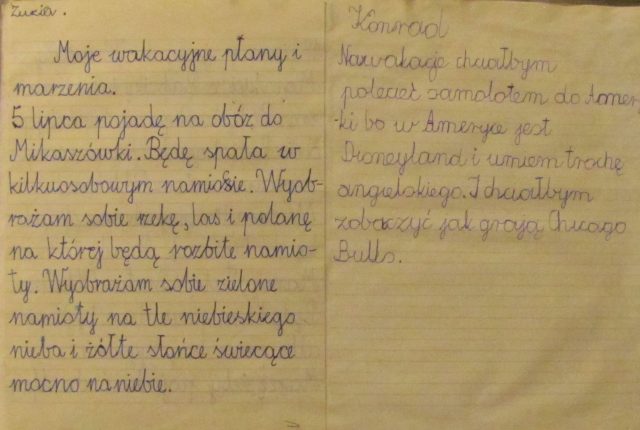 Zuzia.
Moje wakacyjne plany i
marzenia.
5 lipca pojadę na obóz do
Mikaszówki. Będę spała w
kilkuosobowym namiosie. Wyob-
rażam sobie rzekę, las i polanę
na której będą rozbite namio-
ty. Wyobrażam sobie zielone
namioty na tle niebieskiego
nieba i żółte słońce świecące
mocno na niebie.
Konrad
Na wakacje chciałbym
polecieć samolotem do Amer-
-ki bo w Ameryce jest
Disneyland i umiem trochę
angielskiego. I chciałbym
zobaczyć jak grają Chicago
Bulls.